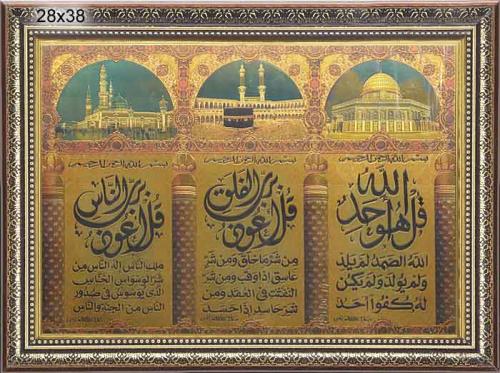 28x38
بسم الله الرحمن الرحيم
قل هو الله أحد
الله الصمد لم يلد
ولم يولد ولم يكن
له كفوا أحد
بسم الله الرحمن الرحيم
قل أعوذ برب الفلق
من شر ما خلق ومن شر
غاسق إذا وقب ومن شر
النفثت في العقد ومن
شر حاسد إذا حسد
بسم الله الرحمن الرحيم
قل أعوذ برب الناس
ملك الناس اله الناس من
شر الوسواس الخناس
الذي يوسوس في صدور
الناس من الجنة والناس